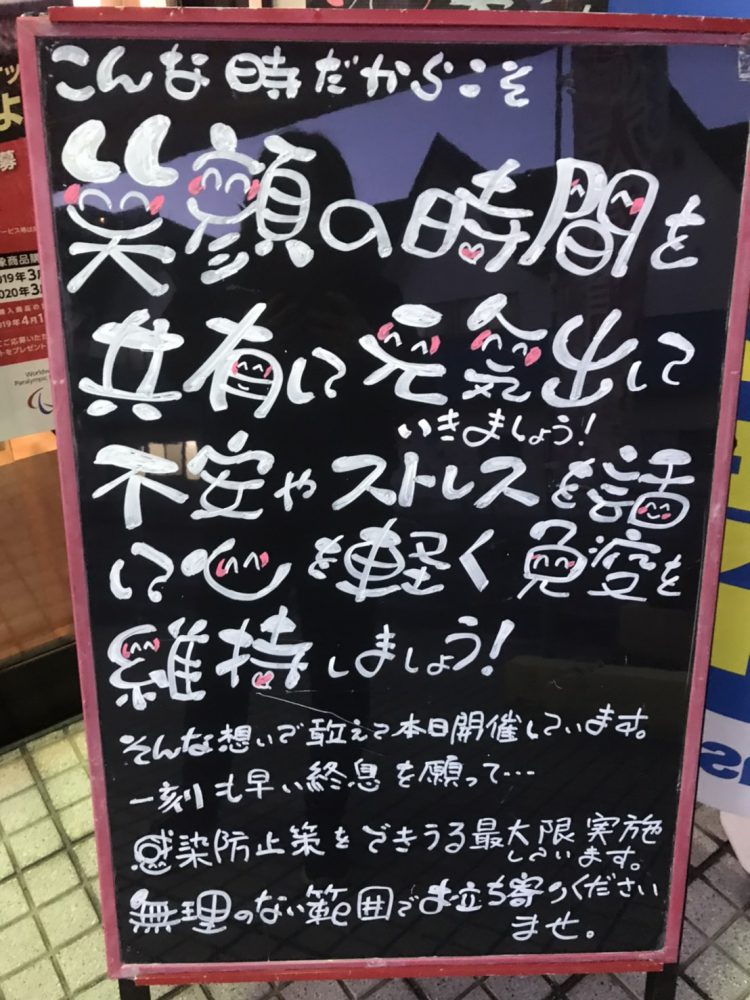 こんな時だからこそ
笑顔の時間を
共有して元気出して
いきましょう!
不安やストレスを話
して心を軽く免疫を
維持しましょう!
そんな想いで敢えて本日開催しています。
一刻も早い終息を願って…
感染防止策をできうる最大限実施
しています。
無理のない範囲でお立ち寄りください
ませ。
募
象商品購
019年3月
2020年3月